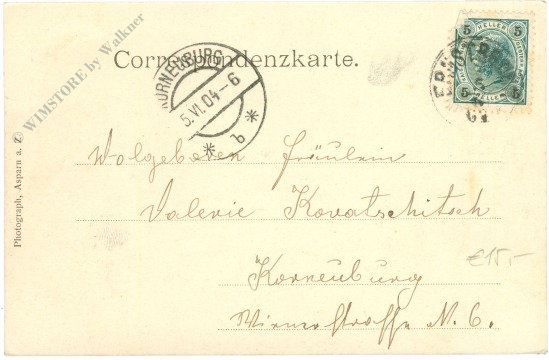 WIMSTORE by Walkner
Correspondenzkarte.
KORNEUBURG
5.VI.04-6
* b *
5 HELLER 5
5 5
Wolgeboren Fräulein
Valerie Kovatschitsch
Korneuburg
Wienerstraße N. 6.
€15,-
Photograph, Asparn a. Z